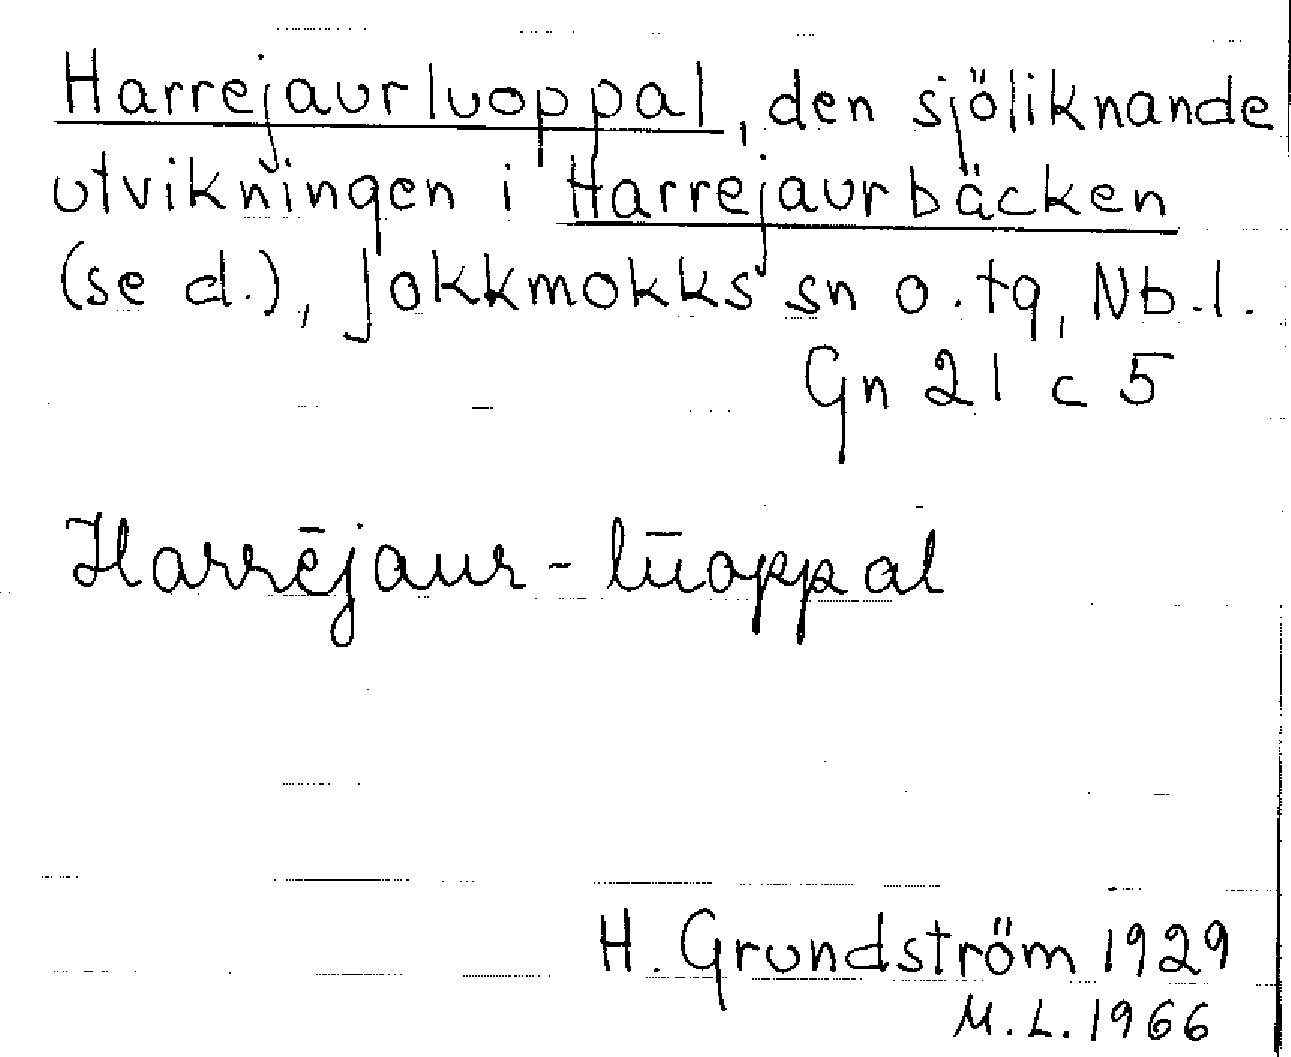 Harrejaurluoppal, den sjöliknande
utvikningen i Harrejaurbäcken
(se d.), Jokkmokks sn o. tg, Nb.l.
Gn 21 c 5
Harrējaur-lūoppal
H. Grundström 1929
M.L. 1966